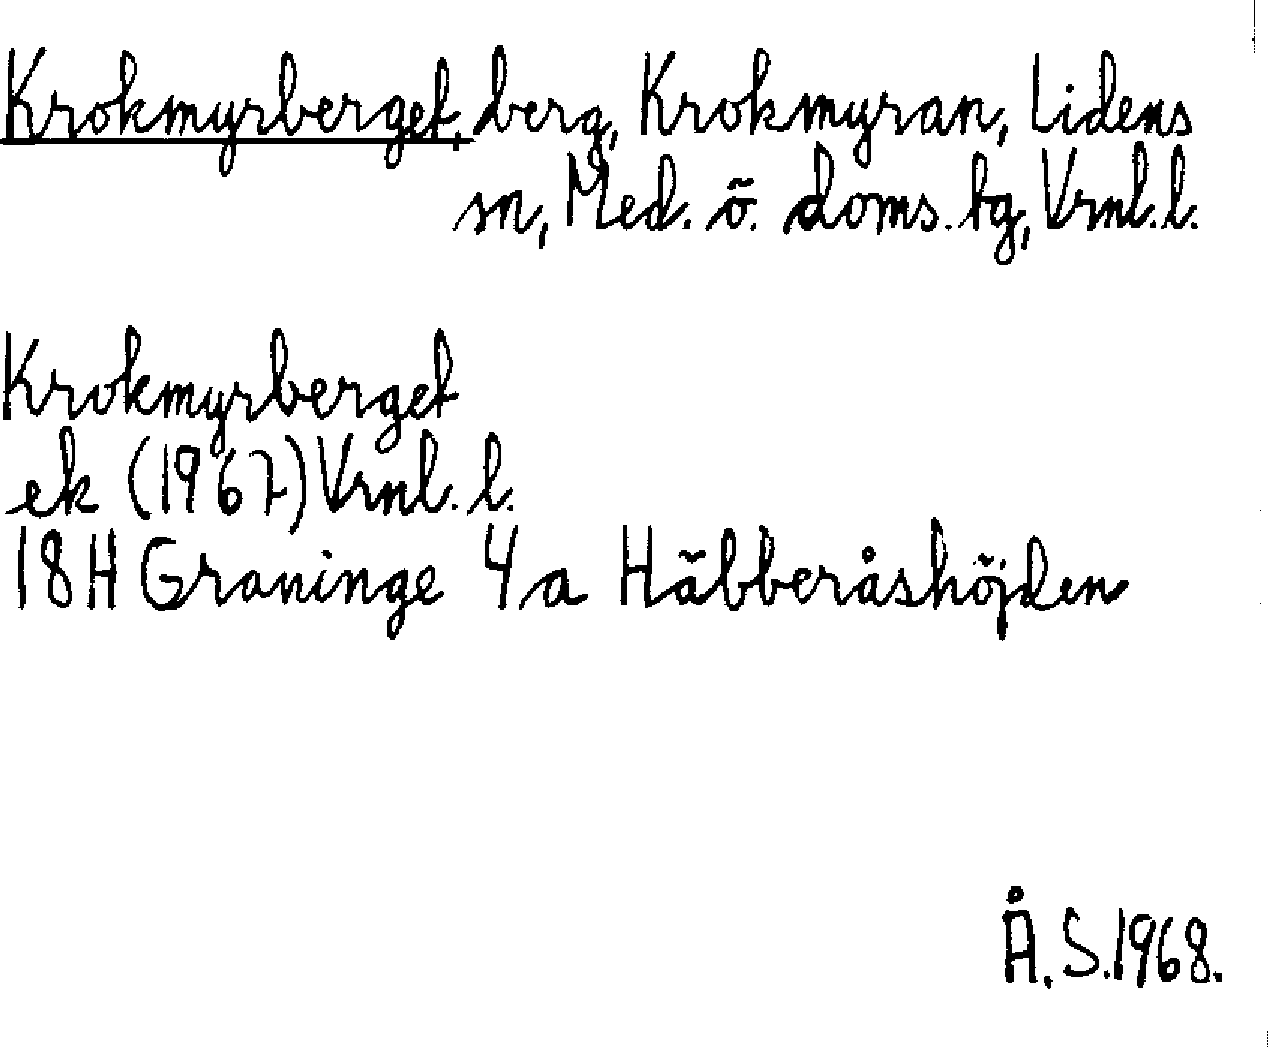 Krokmyrberget, berg, Krokmyran, Lidens
sn, Med. ö. doms. tg, Vrnl. l.
Krokmyrberget
ek (1967) Vrnl. l.
18H Graninge 4a Häbberåshöjden
Å. S. 1968.